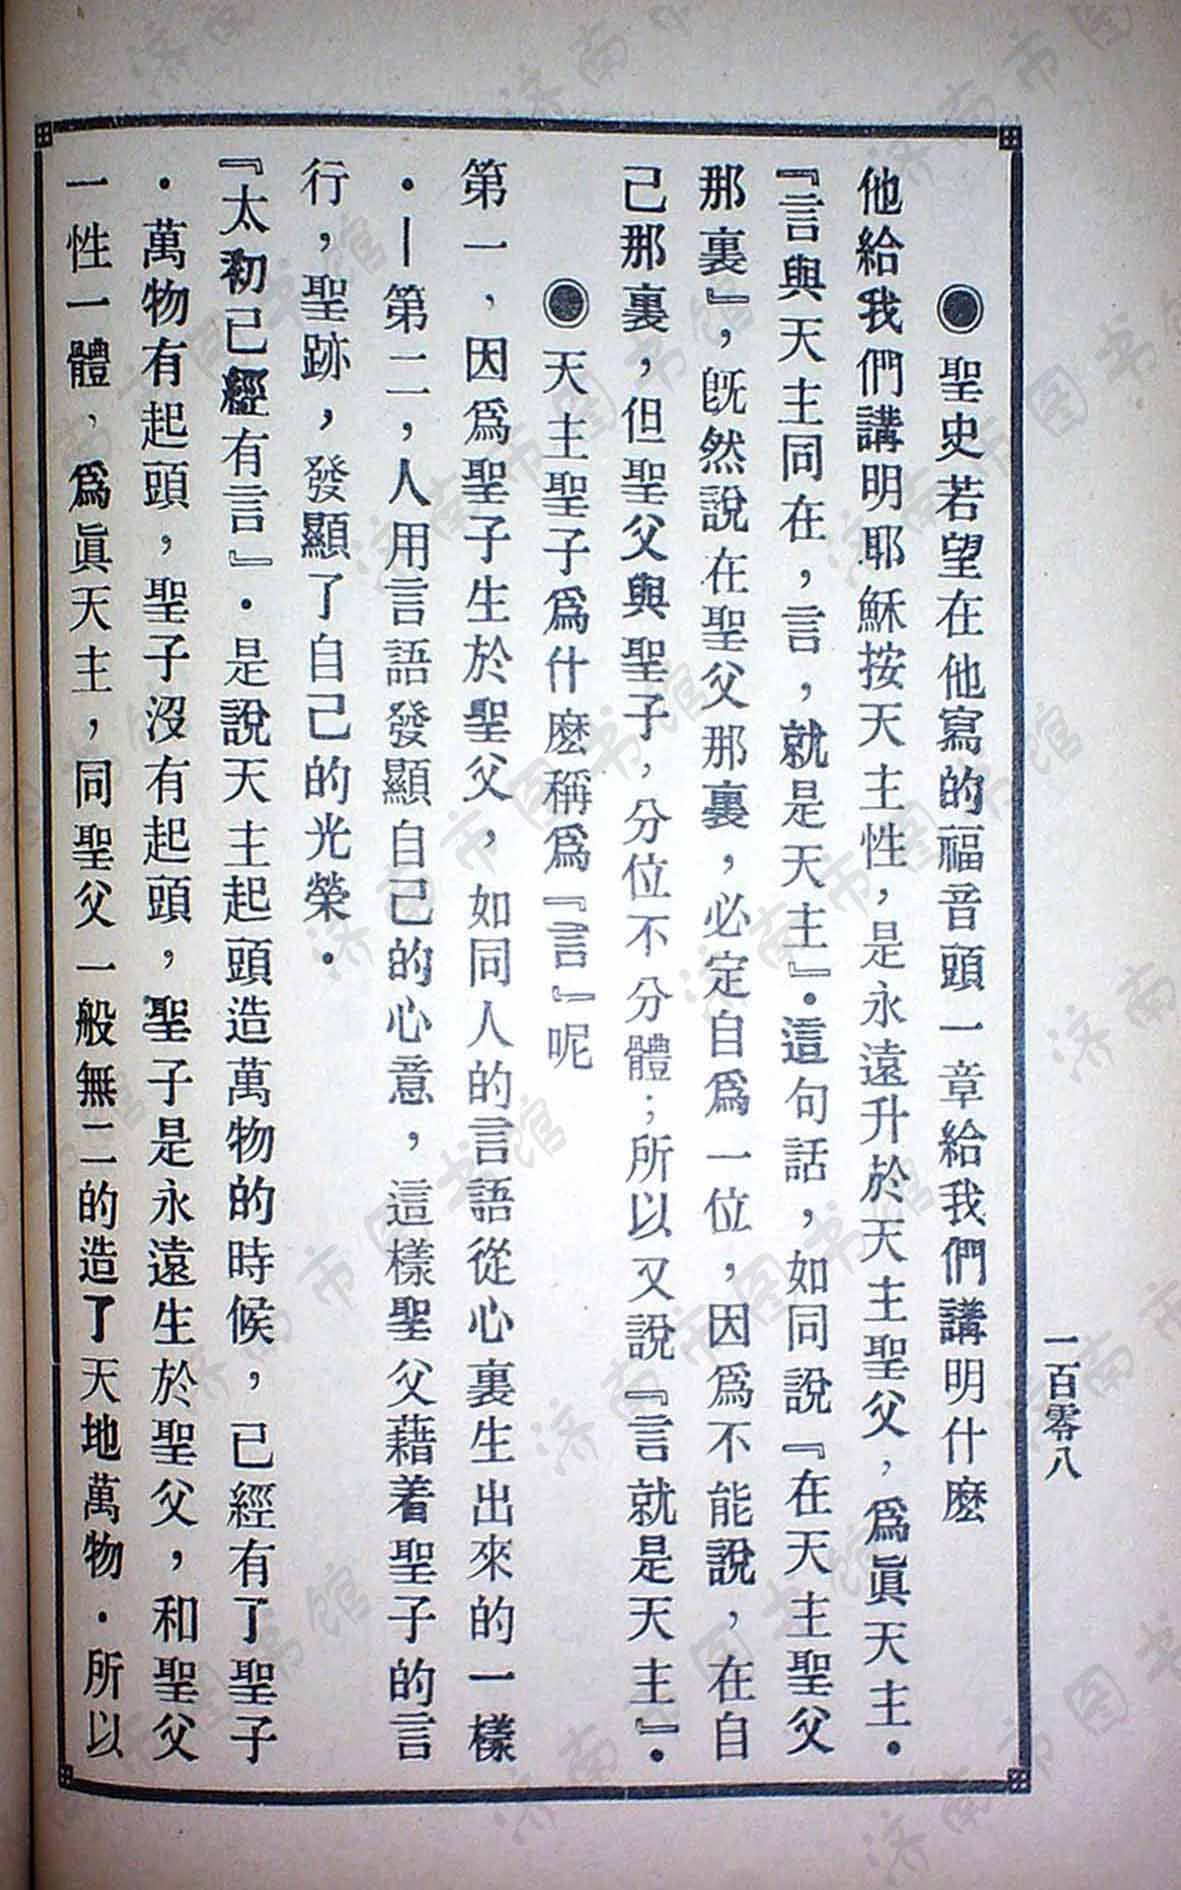 一百零八
◉聖史若望在他寫的福音頭一章給我們講明什麽
他給我們講明耶穌按天主性，是永遠升於天主聖父，爲眞天主．
『言與天主同在，言，就是天主』．這句話，如同說『在天主聖父
那裏』，旣然說在聖父那裏，必定自爲一位，因爲不能說，在自
己那裏，但聖父與聖子，分位不分體；所以又說『言就是天主』．
◉天主聖子爲什麽稱爲『言』呢
第一，因爲聖子生於聖父，如同人的言語從心裏生出來的一樣
．—第二，人用言語發顯自己的心意，這樣聖父藉着聖子的言
行，聖跡，發顯了自己的光榮．
『太初已經有言』．是說天主起頭造萬物的時候，已經有了聖子
．萬物有起頭，聖子沒有起頭，聖子是永遠生於聖父，和聖父
一性一體，爲眞天主，同聖父一般無二的造了天地萬物．所以
济南市图书馆